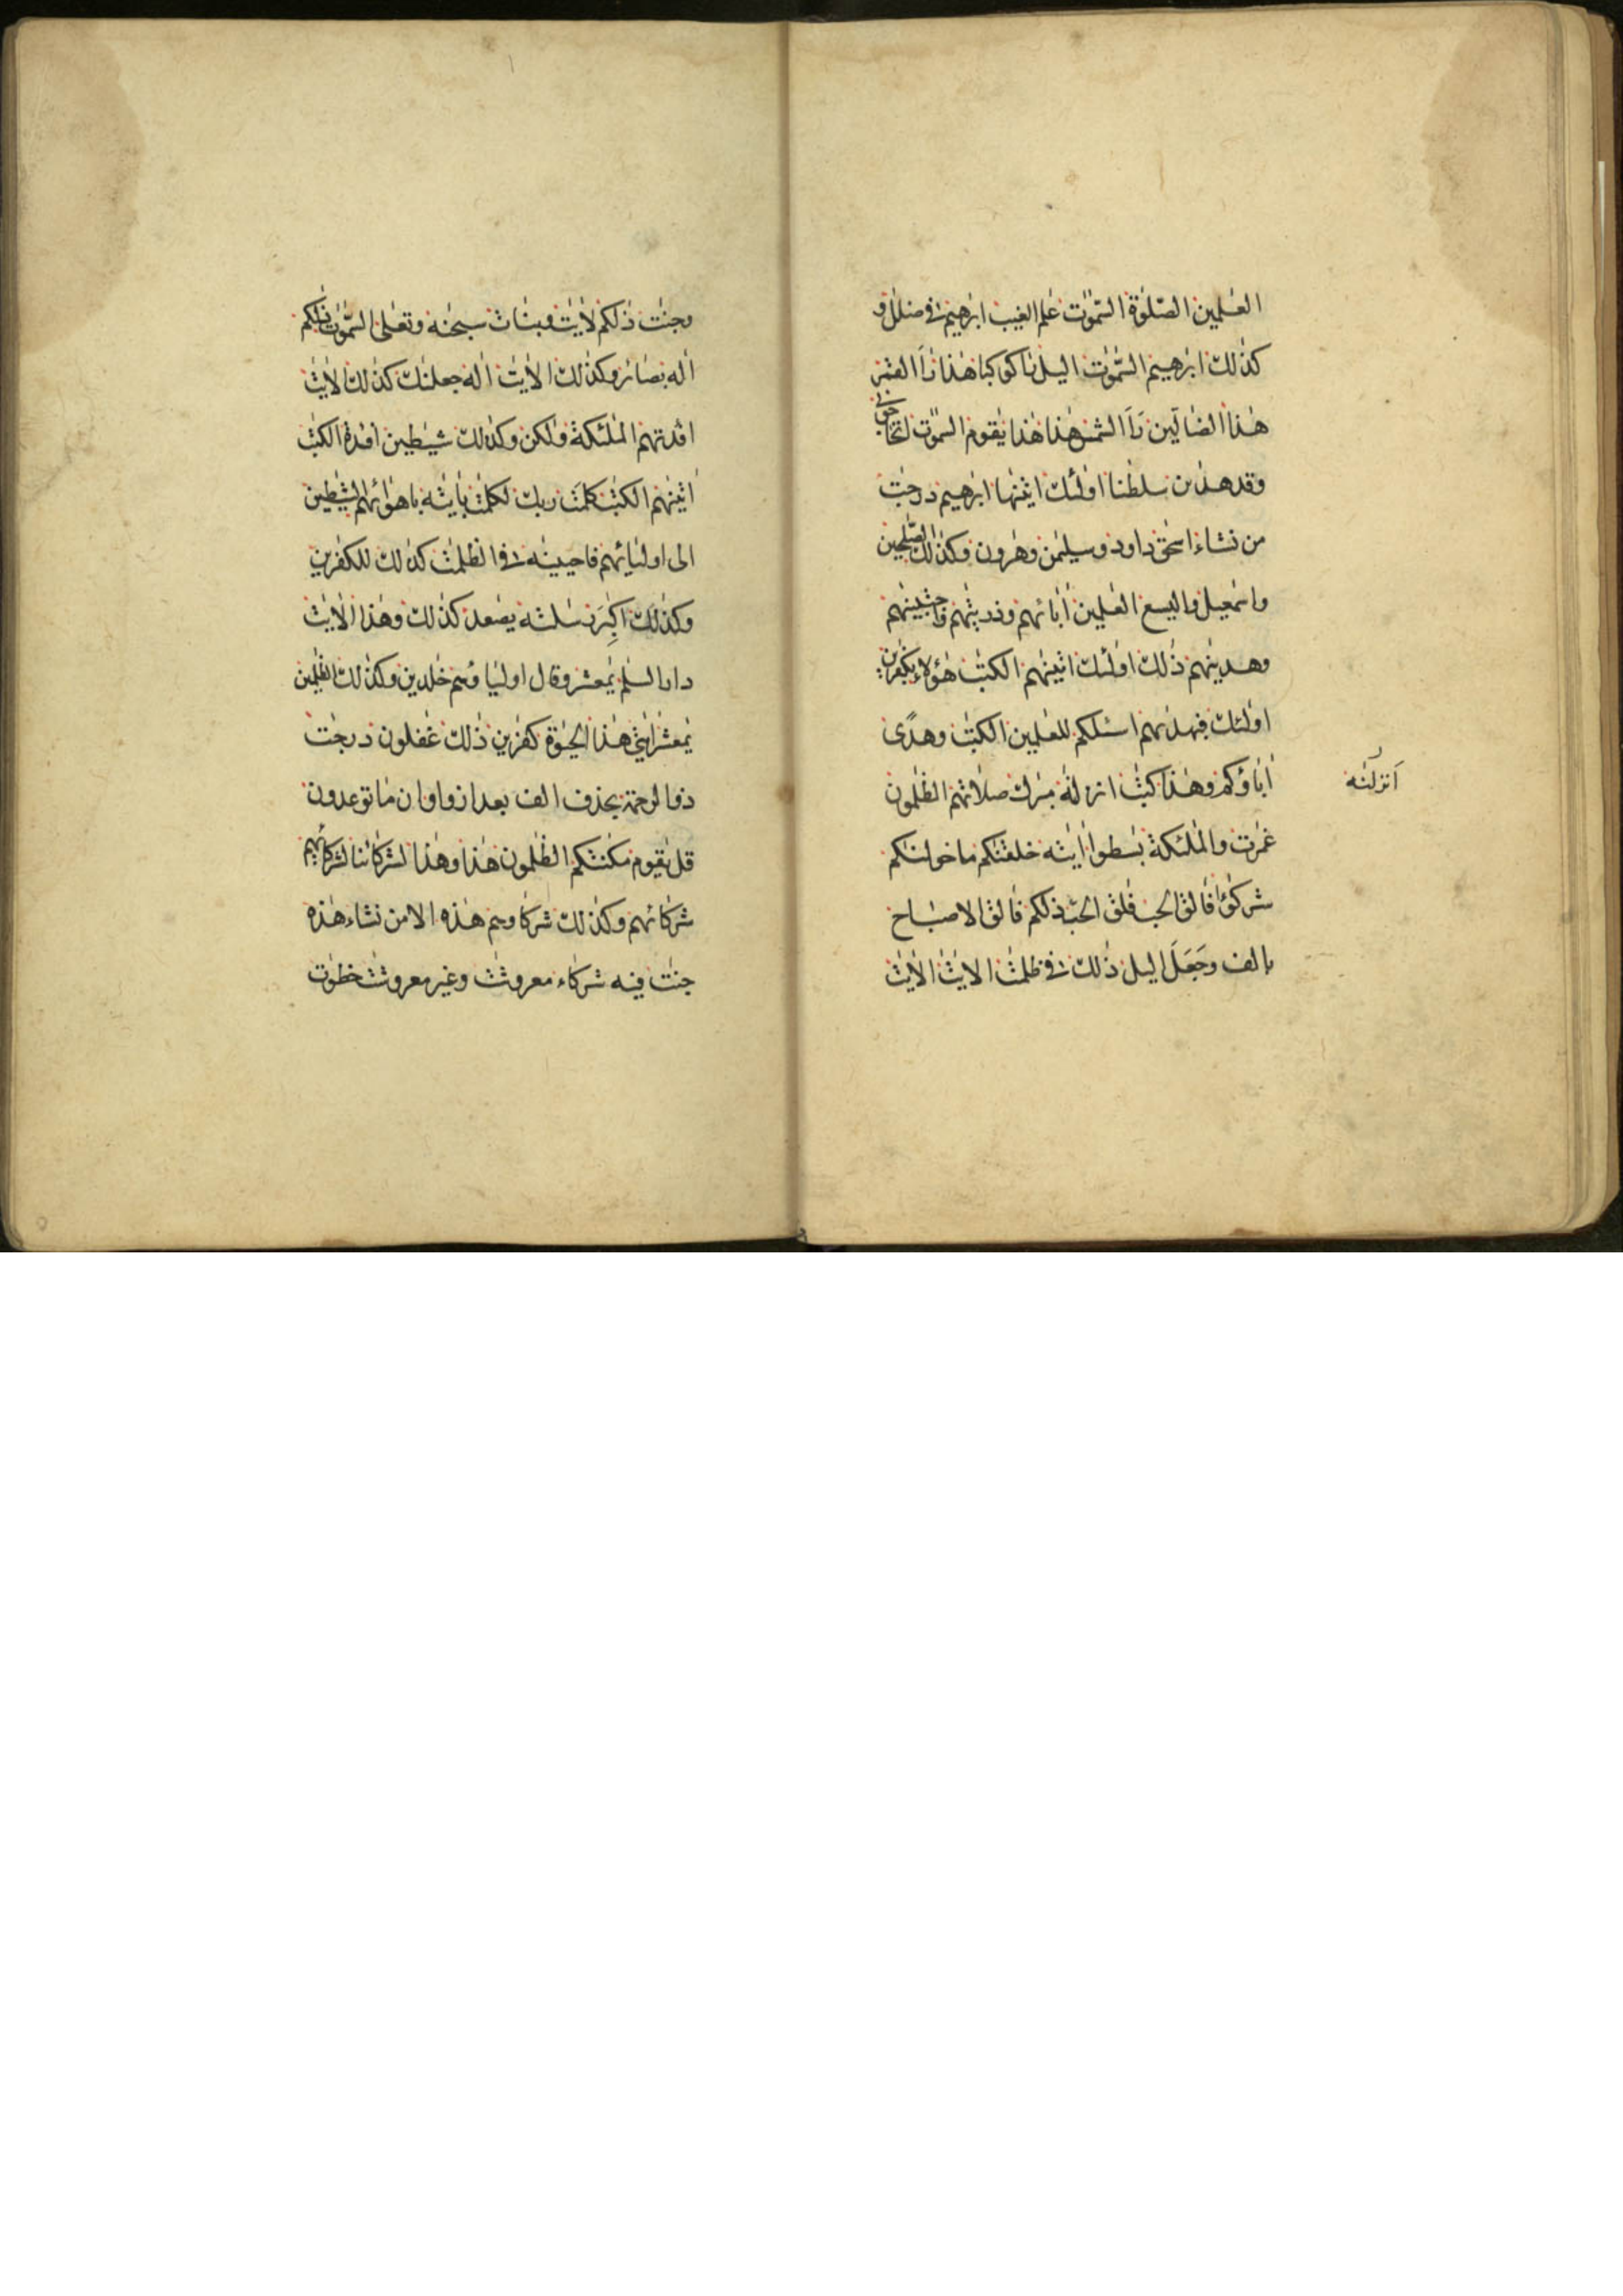 العٰلمين الصّلوٰة السّمٰوٰت عٰلم الغيب ابرٰهيم فى ضلٰل و
كذٰلك ابرٰهيم السّمٰوٰت اليل رٰا كوكبا هٰذا رَاَ القمر
هٰذا الضالّين رَاَ الشمس هٰذا هٰذا يٰقوم السمٰوٰت اتحاجّونى
وقد هدٰىن سلطٰنا اولٰئك اتينٰها ابرٰهيم درجٰت
من نشاء اسحٰق داود وسليمٰن وهٰرون وكذٰلك الصّٰلحين
واسمٰعيل واليسع العٰلمين اٰبائهم وذريّٰتهم واجتبينٰهم
وهدينٰهم ذٰلك اولٰئك اتينٰهم الكتٰب هٰؤلاء بكٰفرين
اولٰئك فبهدٰىهم اسئلكم للعٰلمين الكتٰب وهدًى
اٰباؤكم وهٰذا كتٰب انزلنٰه مبٰرك صلاتهم الظٰلمون
انزلنٰه
غمرٰت والملٰئكة باسطوا اٰيٰته خلقنٰكم ما خولنٰكم
شركٰؤا فالق الحب فلق الحبّ ذلكم فالق الاصباح
بالف وجَعَلَ اليل ذٰلك فى ظلمٰت الاٰيٰت الاٰيٰت
وجنّٰت ذٰلكم لاٰيٰت وبنات سبحٰنه وتعٰلى السّمٰوٰت ذٰلكم
اله بصائر وكذٰلك الاٰيٰت اله جعلنٰك كذٰلك الاٰيٰت
افدتهم الملٰئكة ولٰكن وكذٰلك شيٰطين افدة الكتٰب
اتينٰهم الكتٰب كلمَت ربك لكلمٰت باٰيٰته باهوائهم الشيٰطين
الى اوليائهم فاحيينٰه فى الظلمٰت كذٰلك للكٰفرين
وكذٰلك اكٰبِرَ رسٰلته يصعد كذٰلك وهٰذا الاٰيٰت
دار السلٰم يٰمعشر وقال اوليٰاؤهم خٰلدين وكذٰلك الظٰلمين
يٰمعشر اٰيٰتى هٰذا الحيٰوة كٰفرين ذٰلك غٰفلون درجٰت
ذوا لرحمة بحذف الف بعد از واو ان ما توعدون
قل يٰقوم مكٰنتكم الظٰلمون هٰذا وهٰذا لشركائنا لشركائهم
شركائهم وكذٰلك شركاوهم هٰذه الا من نشاء هٰذه
جنّٰت فيه شركاء معروشٰت وغير معروشٰت خطوٰت